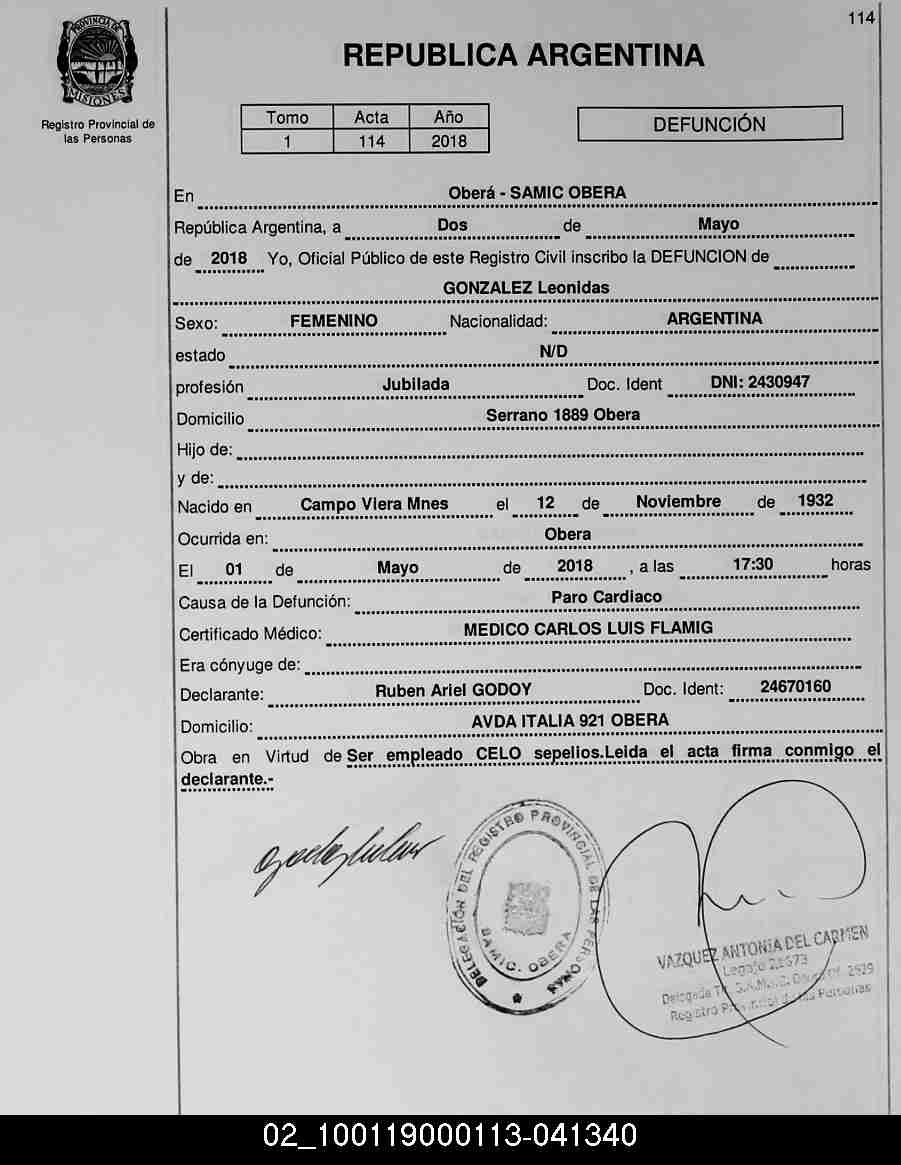 114
PROVINCIA DE
MISIONES
Registro Provincial de
las Personas
REPUBLICA ARGENTINA
Tomo Acta Año
1 114 2018
DEFUNCIÓN
En Oberá - SAMIC OBERA
República Argentina, a Dos de Mayo
de 2018 Yo, Oficial Público de este Registro Civil inscribo la DEFUNCION de
GONZALEZ Leonidas
Sexo: FEMENINO Nacionalidad: ARGENTINA
estado N/D
profesión Jubilada Doc. Ident DNI: 2430947
Domicilio Serrano 1889 Obera
Hijo de:
y de:
Nacido en Campo Viera Mnes el 12 de Noviembre de 1932
Ocurrida en: Obera
El 01 de Mayo de 2018 , a las 17:30 horas
Causa de la Defunción: Paro Cardiaco
Certificado Médico: MEDICO CARLOS LUIS FLAMIG
Era cónyuge de:
Declarante: Ruben Ariel GODOY Doc. Ident: 24670160
Domicilio: AVDA ITALIA 921 OBERA
Obra en Virtud de Ser empleado CELO sepelios.Leida el acta firma conmigo el
declarante.-
DELEGACIÓN DEL REGISTRO PROVINCIAL DE LAS PERSONAS
SAMIC. OBERA
VAZQUEZ ANTONIA DEL CARMEN
Legajo
Delegada
Registro Provincial de las Personas
02_100119000113-041340